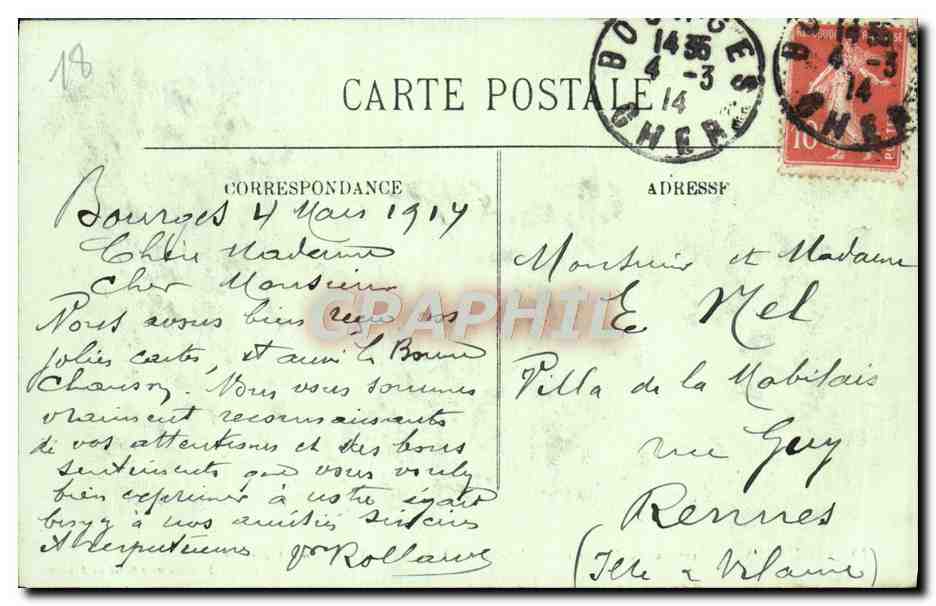 18
CARTE POSTALE
BOURGES
14 35
4 -3
14
CHER
BOURGES
14 35
4 -3
14
CHER
10
CORRESPONDANCE
ADRESSE
Bourges 4 Mars 1914
Chère Madame
Cher Monsieur
Nous avons bien reçu vos
jolies cartes, et aussi la Bonne
Chanson. Nous vous sommes
vraiment reconnaissants
de vos attentions et des bons
sentiments que vous voulez
bien exprimer à notre égard
à nos amitiés sincères
et respectueuses Rolland
Monsieur et Madame
E Nel
Villa de la Mabilais
rue Guy
Rennes
(Ille & Vilaine)
CPAPHIL